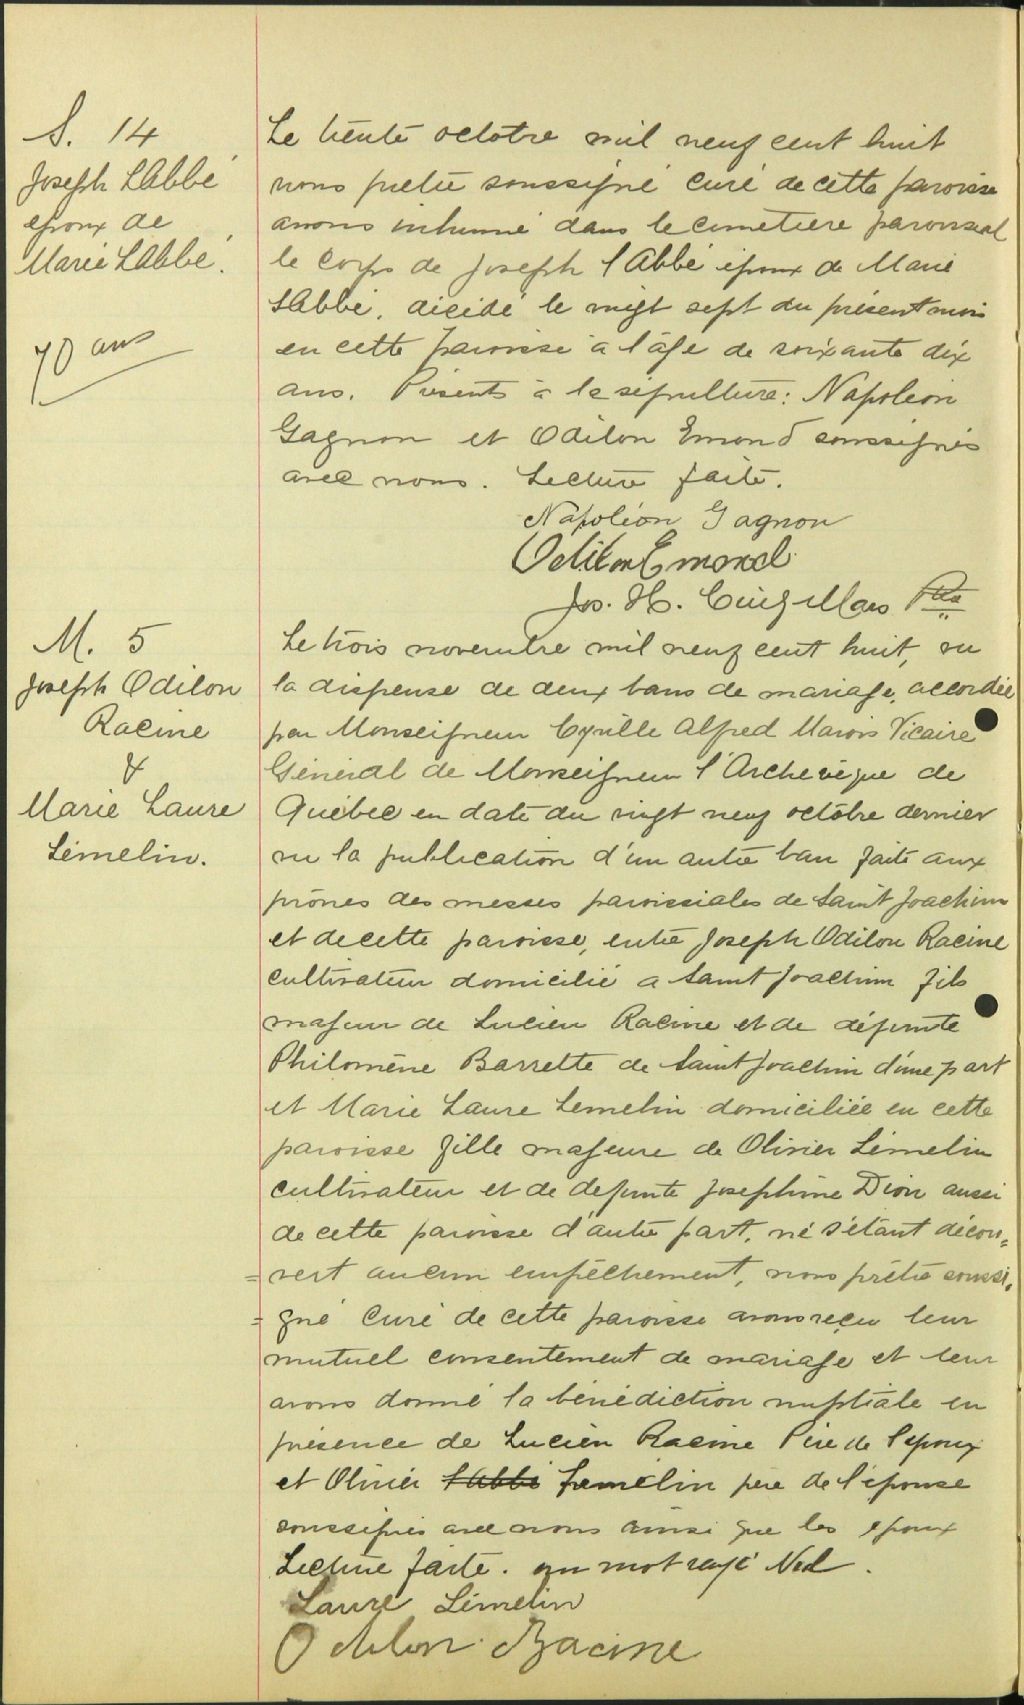 S. 14
Joseph LAbbé
époux de
Marie LAbbé.
70 ans
Le trente octobre mil neuf cent huit
nous prêtre soussigné curé de cette paroisse
avons inhumé dans le cimetière paroissial
le corps de Joseph l'Abbé époux de Marie
LAbbé, décédé le vingt sept du présent mois
en cette paroisse à l'âge de soixante dix
ans. Présents à la sépulture: Napoléon
Gagnon et Odilon Emond soussignés
avec nous. Lecture faite.
Napoléon Gagnon
Odilon Emond
Jos. H. Cinq-Mars Ptre
M. 5
Joseph Odilon
Racine
&
Marie Laure
Lémelin.
Le trois novembre mil neuf cent huit, vu
la dispense de deux bans de mariage, accordée
par Monseigneur Cyrille Alfred Marois Vicaire
Général de Monseigneur l'Archevêque de
Québec en date du vingt neuf octobre dernier
vu la publication d'un autre ban faite aux
prônes des messes paroissiales de Saint Joachim
et de cette paroisse, entre Joseph Odilon Racine
cultivateur domicilié a Saint Joachim fils
majeur de Lucien Racine et de défunte
Philomène Barrette de Saint Joachim d'une part
et Marie Laure Lemelin domiciliée en cette
paroisse fille majeure de Olivier Lémelin
cultivateur et de defunte Josephine Dion aussi
de cette paroisse d'autre part, ne s'étant décou=
=vert aucun empêchement, nous prêtre soussi=
=gné curé de cette paroisse avons reçu leur
mutuel consentement de mariage et leur
avons donné la bénédiction nuptiale en
présence de Lucien Racine Père de l'époux
et Olivier l'Abbé Lemelin père de l'épouse
soussignés avec nous ainsi que les époux
Lecture faite. un mot rayé Nul.
Laure Lémelin
Odilon Racine